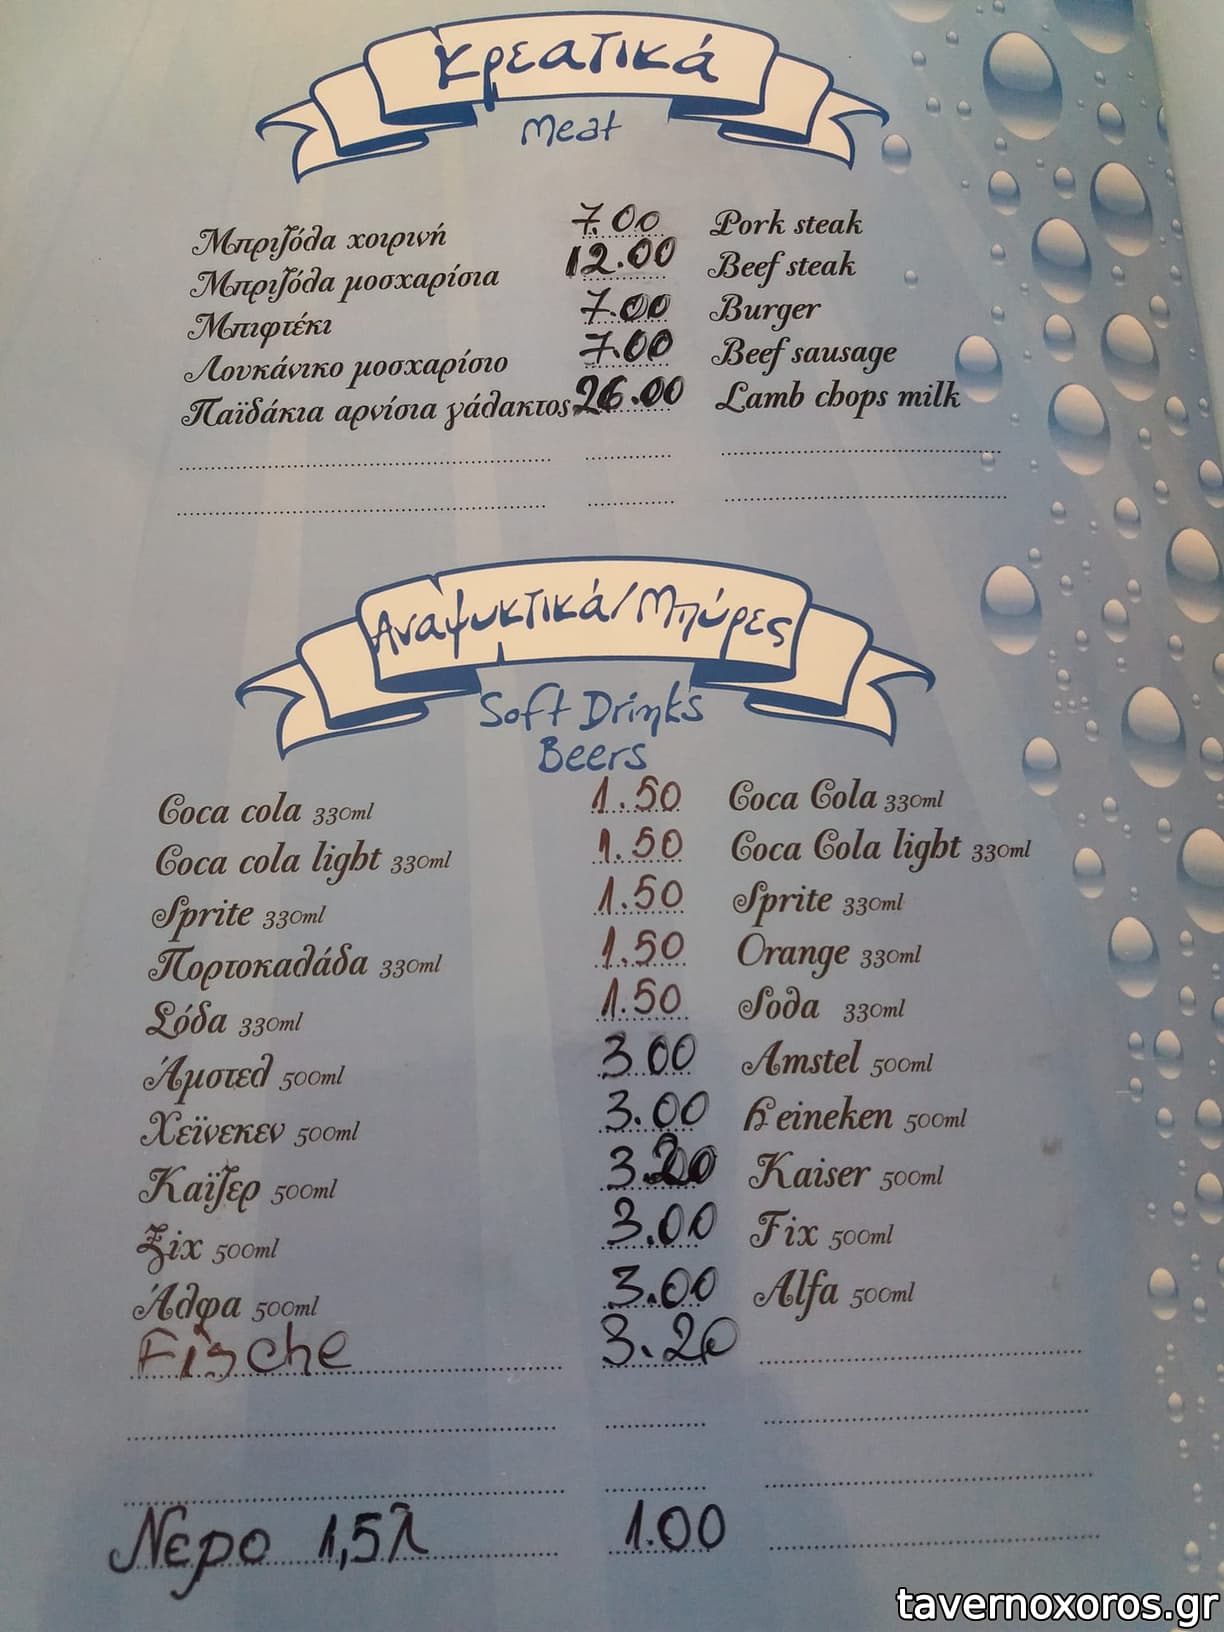 Κρεατικά
Meat
Μπριζόλα χοιρινή 7.00 Pork steak
Μπριζόλα μοσχαρίσια 12.00 Beef steak
Μπιφτέκι 7.00 Burger
Λουκάνικο μοσχαρίσιο 7.00 Beef sausage
Παϊδάκια αρνίσια γάλακτος 26.00 Lamb chops milk
Αναψυκτικά/Μπύρες
Soft Drinks
Beers
Coca cola 330ml 1.50 Coca Cola 330ml
Coca cola light 330ml 1.50 Coca Cola light 330ml
Sprite 330ml 1.50 Sprite 330ml
Πορτοκαλάδα 330ml 1.50 Orange 330ml
Σόδα 330ml 1.50 Soda 330ml
Άμστελ 500ml 3.00 Amstel 500ml
Χεϊνεκεν 500ml 3.00 Heineken 500ml
Καϊζερ 500ml 3.20 Kaiser 500ml
Ξiχ 500ml 3.00 Fix 500ml
Άλφα 500ml 3.00 Alfa 500ml
Fische 3.20
Νερο 1,5λ 1.00
tavernoxoros.gr